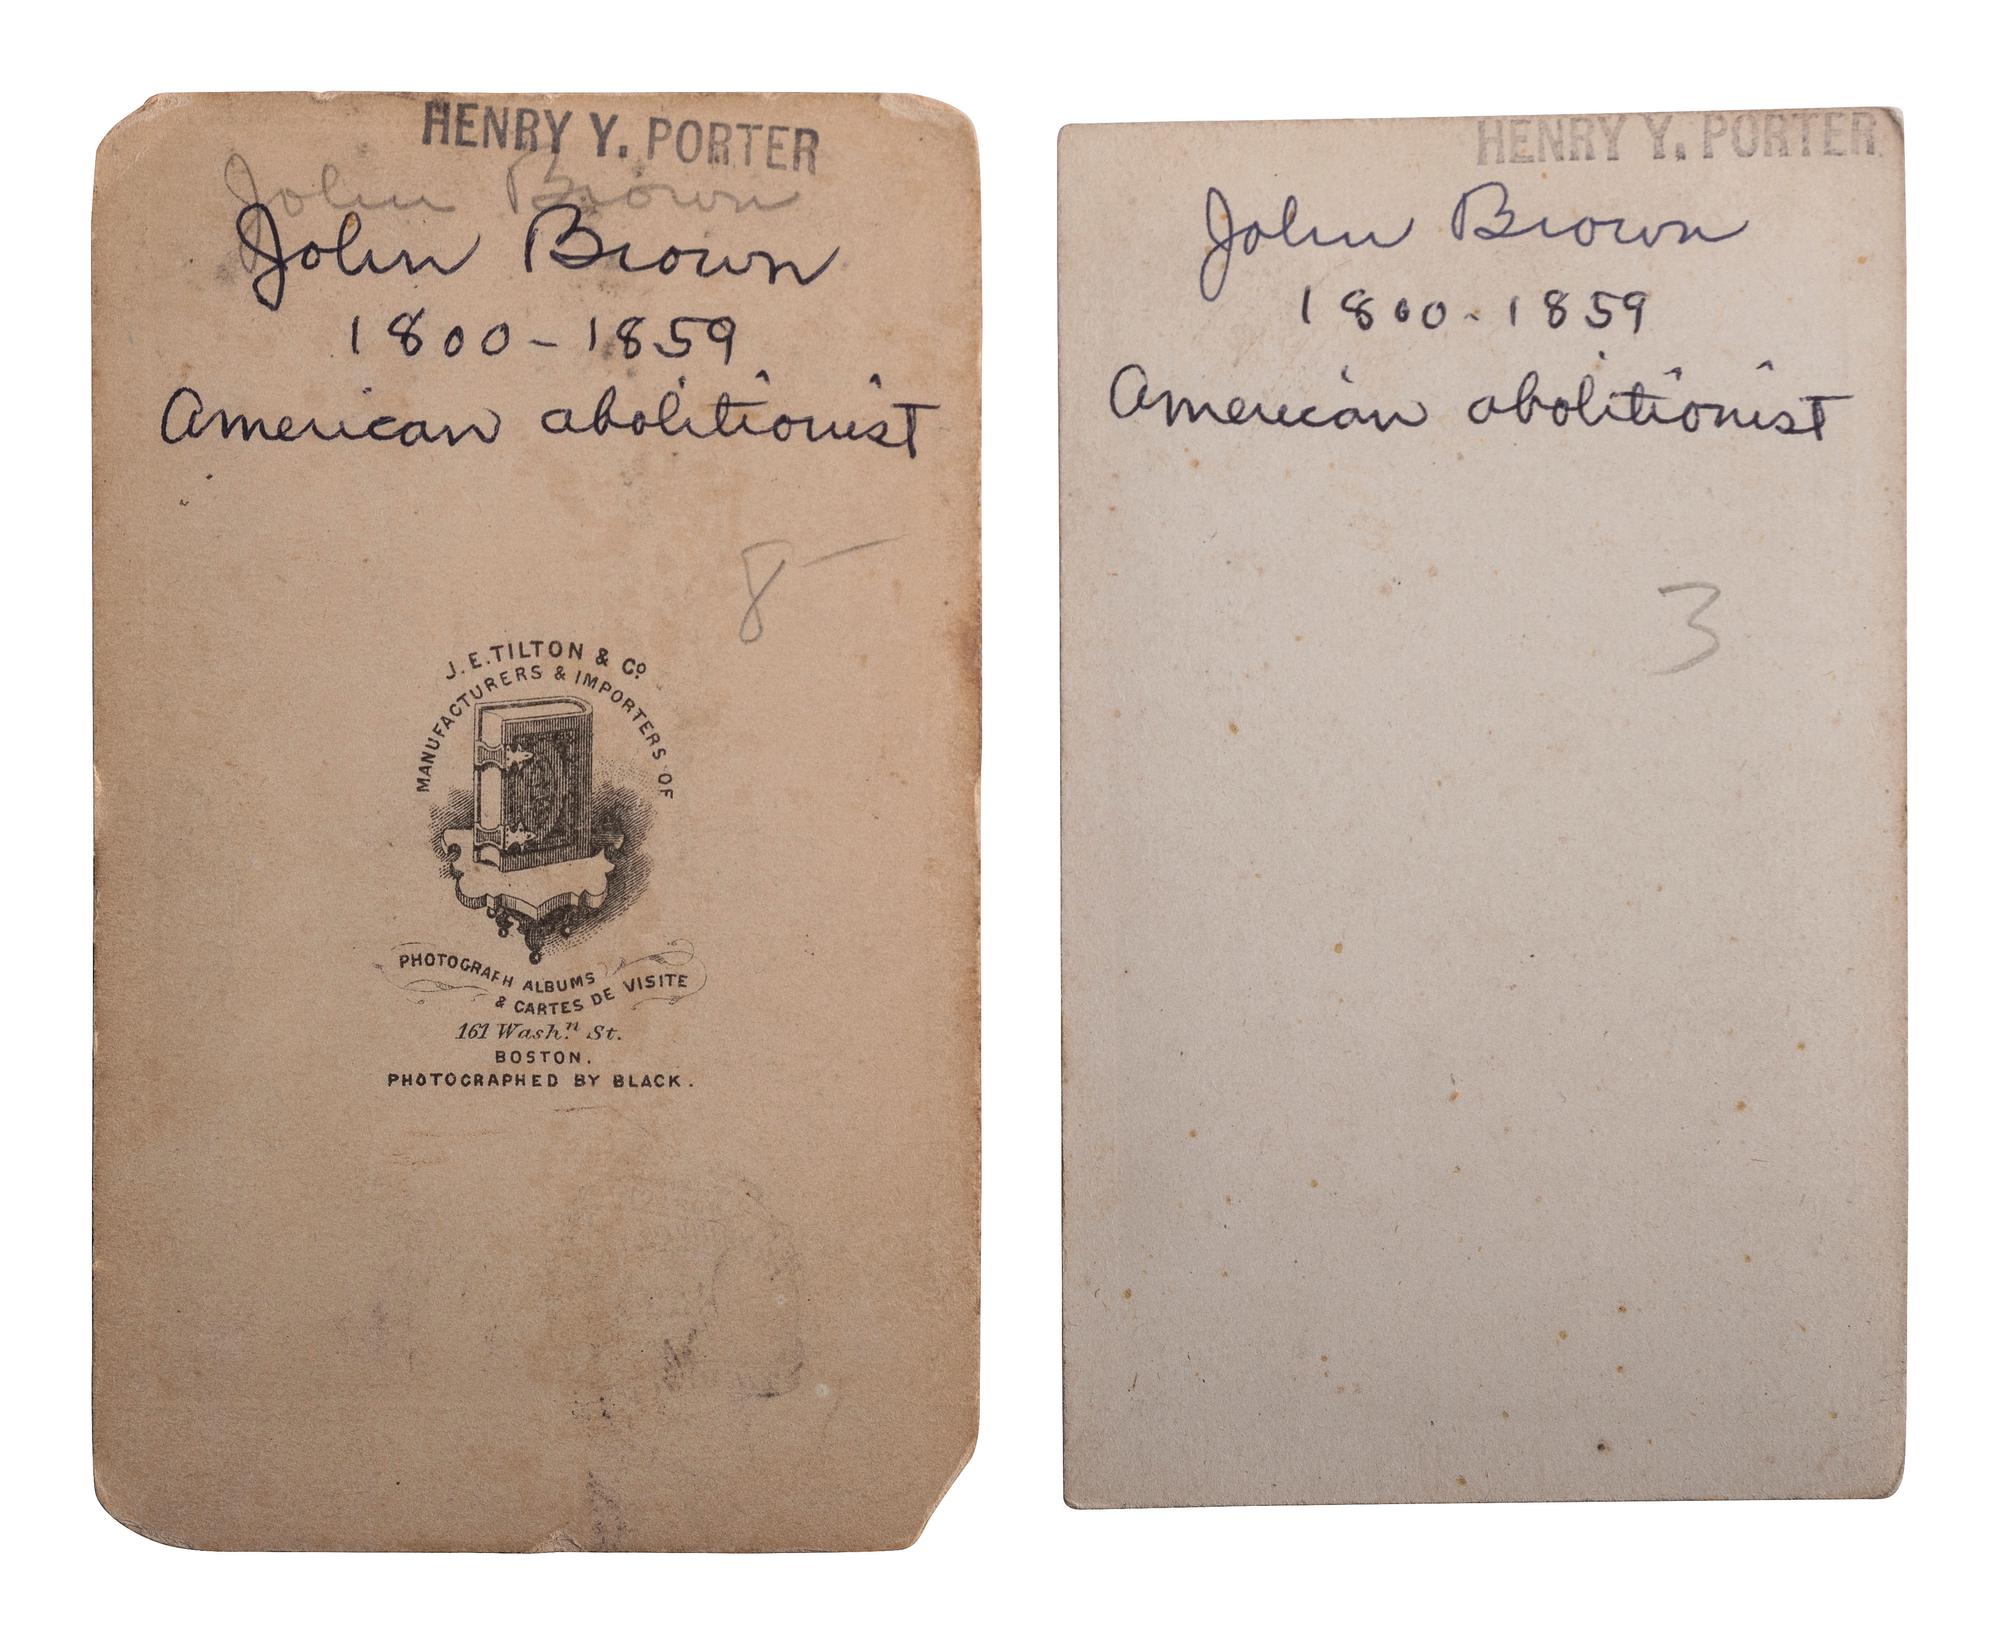 HENRY Y. PORTER
John Brown
John Brown
1800-1859
American abolitionist
8-
J. E. TILTON & Co.
MANUFACTURERS & IMPORTERS OF
PHOTOGRAPH ALBUMS
& CARTES DE VISITE
161 Washn. St.
BOSTON.
PHOTOGRAPHED BY BLACK.
HENRY Y. PORTER
John Brown
1800-1859
American abolitionist
3